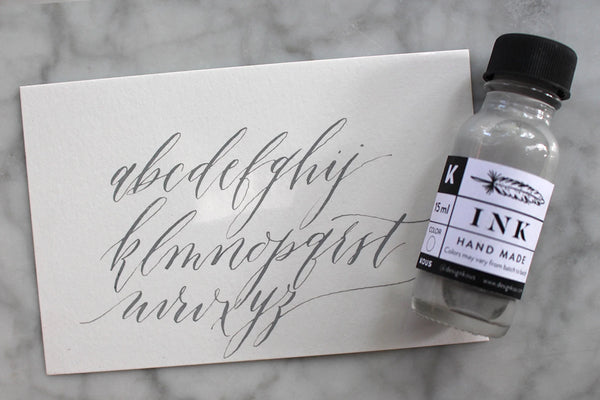 abcdefghij
klmnopqrst
uvwxyz
K
15 ml
COLOR
INK
HAND MADE
Colors may vary from batch to batch
KOUS